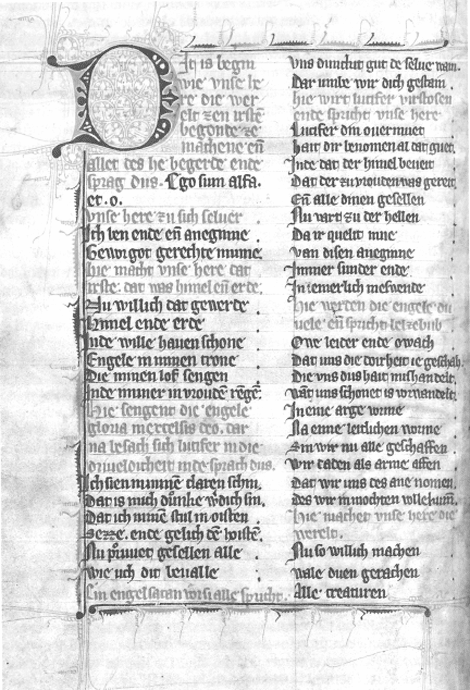 Dit is begin
wie vnse he
re die wer
elt zen irsten
begonde ze
machene eñ
allet des he begerde ende
sprag dus. Ego sum alfa.
et. o.
vnse here zu sich seluer
Ich ben ende eñ aneginne
Gewor got gerechte
hie macht vnse here dat
irste. dat was himel eñ erde.
Nu willich dat gewerde
Himel ende erde
Inde wille hauen schone
Engele in minen trone
Die minen lof sengen
Inde immer in
Hie sengent die engele
gloria in excelsis deo. dar
na besach sich lucifer in die
inde sprach dus.
Ich sien minnen claren schin.
Dat is mich dunke sin.
Dat ich minen stul in oisten
Sezze. ende gelich den hoisten.
Nu pruuet gesellen alle
wie uch dit beualle
Ein engel satan vor si alle spricht.
Vns dunckit gut de selue wan.
Dar umbe wir dich gestain.
hie wirt lucifer virstosen
ende spricht vnse here
Lucifer din ouermuet
Hait dir benomen al dat guet.
Inde dat der himel beueit
Dat der zu vrouden was gereit
Eñ alle dinen gesellen
Nu vart zu der hellen
Da ir quelit inne
van disen aneginne
Immer sunder ende
In iemerlich
Hie werden die engele du
uele eñ spricht belzebub
Owe leider ende owach
Dat uns die doirheit ie geschah
Die vns dus hait mishandelt,
want uns schonet is verwandelt
In eine arge
Na eine leitlichen
Sin wir nu alle geschaffen
wir daden als arme affen
Dat wir uns des ane nomen.
Des wir in mochten
Hie machet vnse here die
werelt.
Nu so willich machen
wale duen gerachen
Alle creaturen